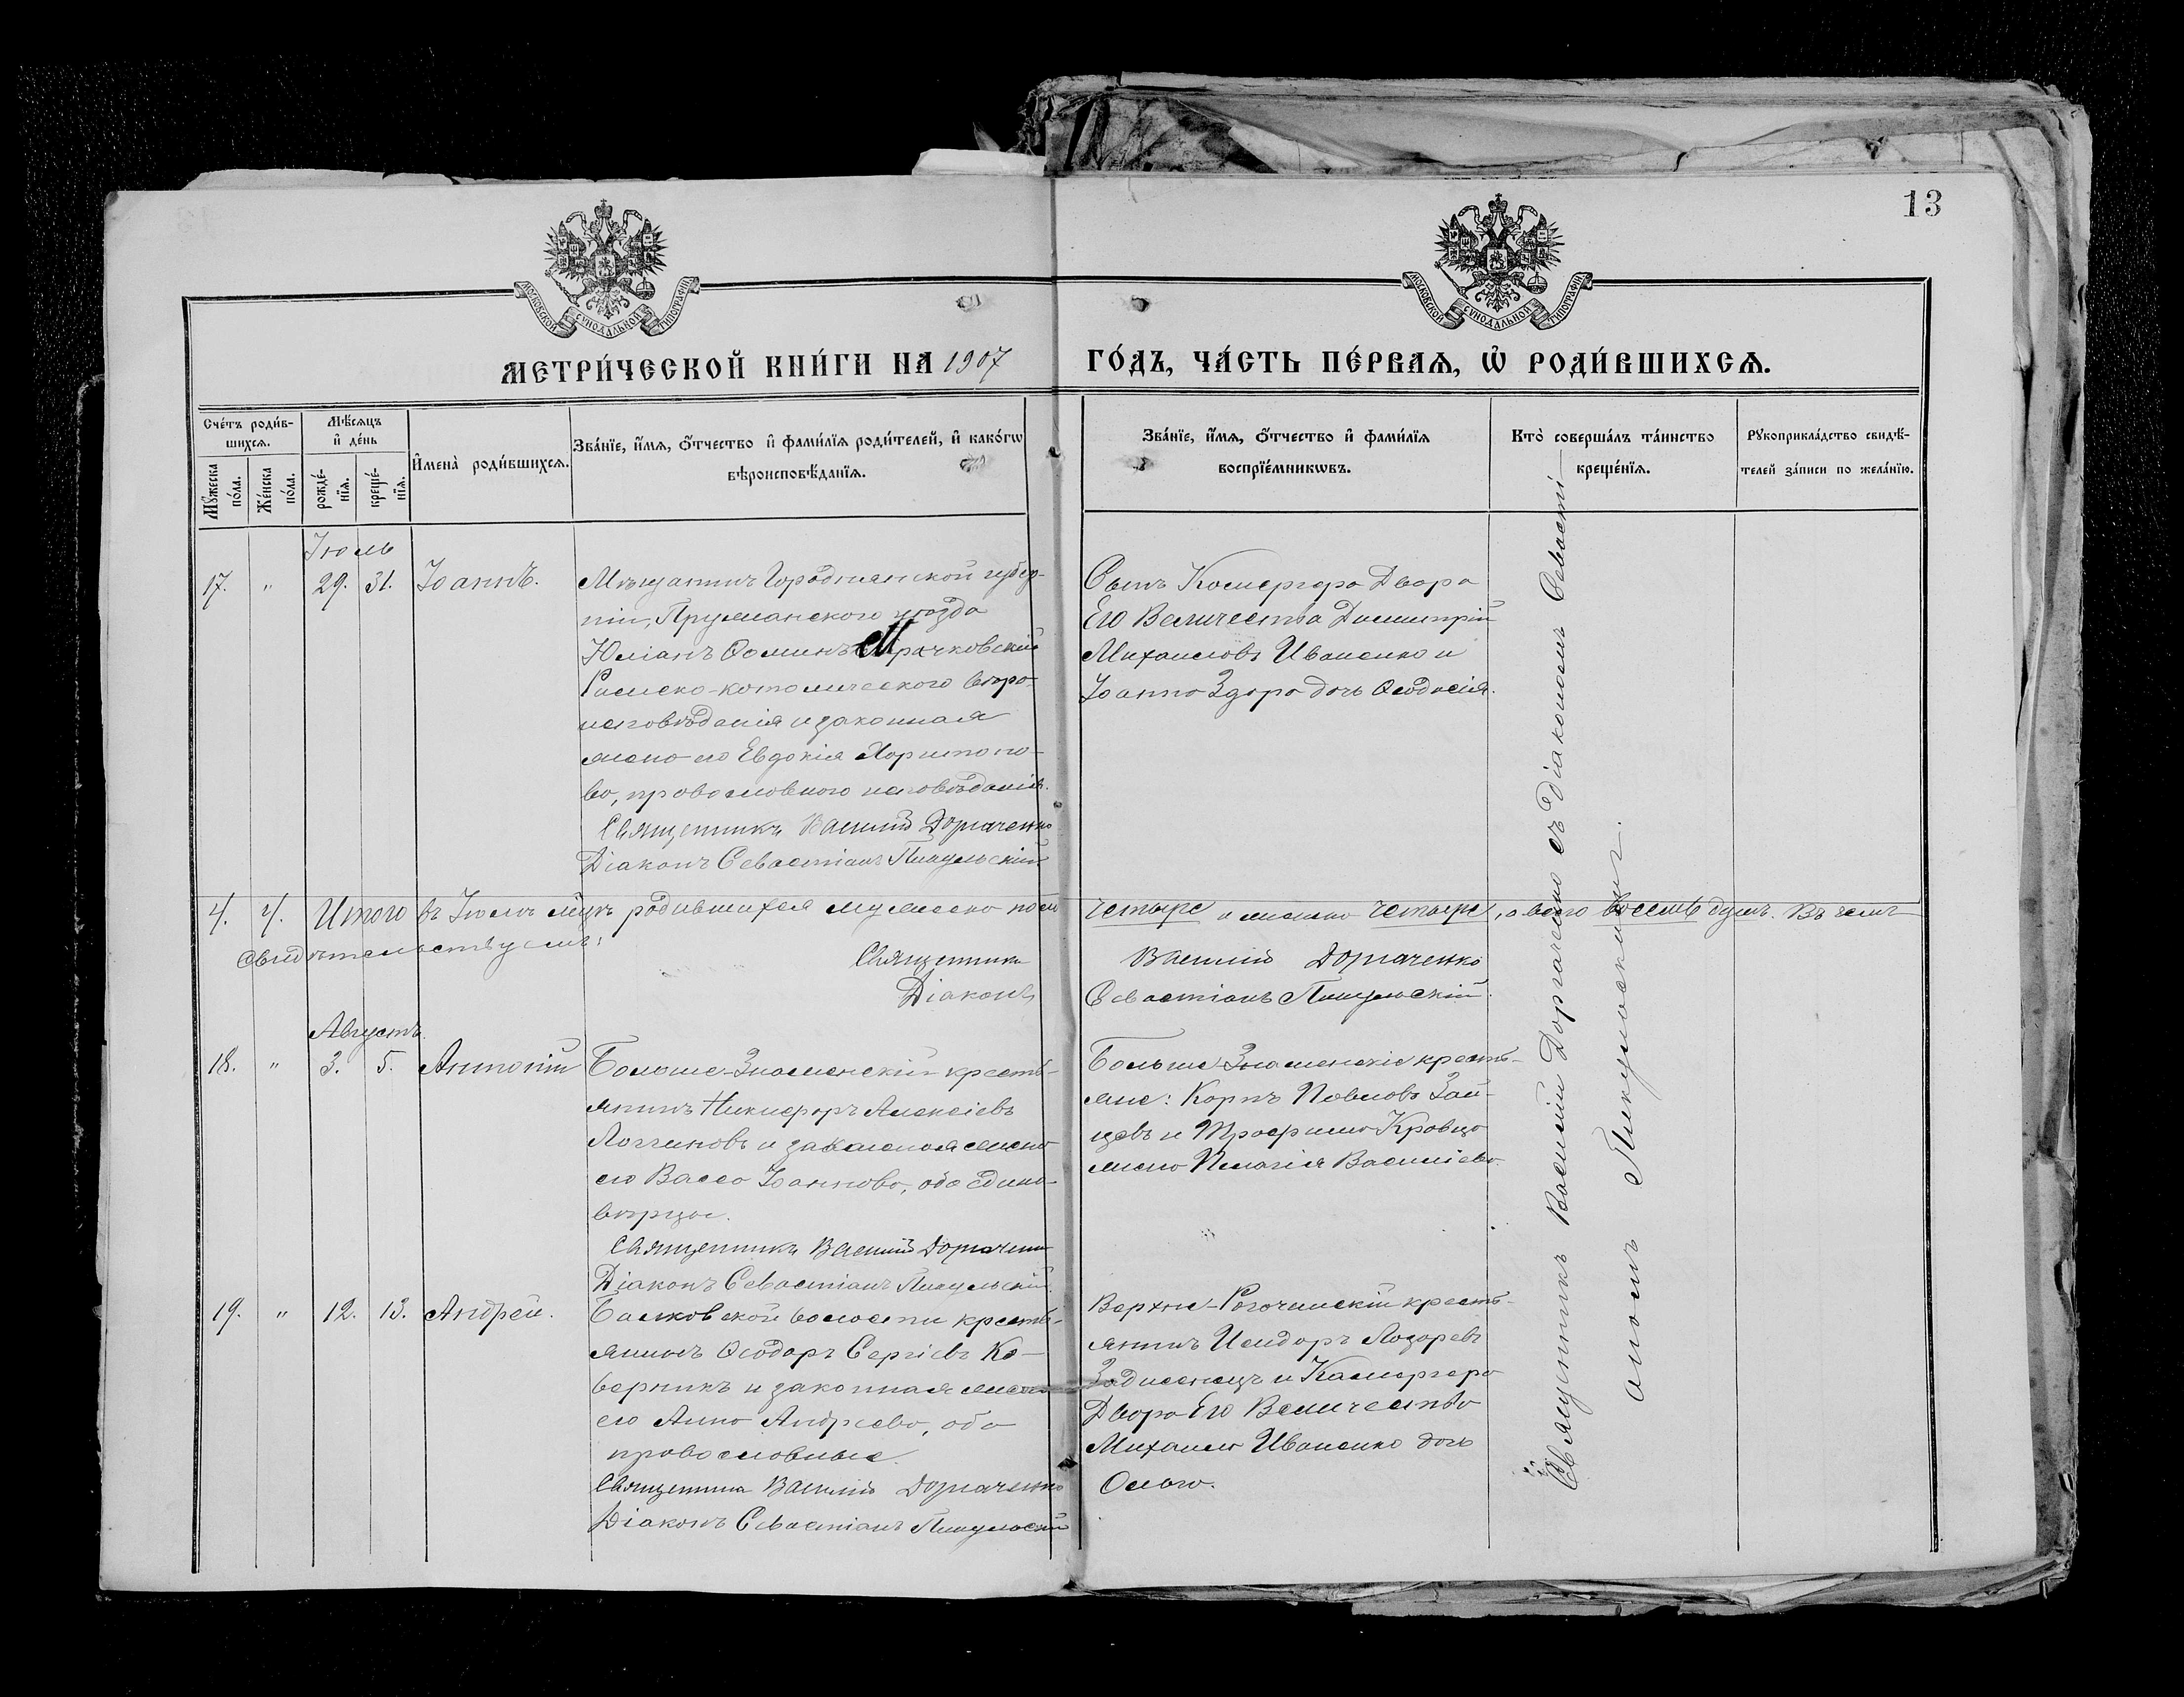 13
МОСКОВСКОЙ СѴНОДАЛЬНОЙ ТИПОГРАФІИ
МОСКОВСКОЙ СѴНОДАЛЬНОЙ ТИПОГРАФІИ
МЕТРИ́ЧЕСКОЙ КНИ́ГИ НА 1907 ГО́ДЪ, ЧА́СТЬ ПЕ́РВАѦ, Ѡ҆ РОДИ́ВШИХСѦ.
Сче́тъ роди́в-
шихсѧ.
Мꙋ́жеска по́ла.
Же́нска по́ла.
Мѣ́сѧцъ
и҆ де́нь
рожде́-
нїѧ.
креще́-
нїѧ.
И҆мена̀ роди́вшихсѧ.
Зва́нїе, и҆́мѧ, ѻ҆́тчество и҆ фами́лїѧ роди́телей, и҆ како́гѡ
вѣроисповѣ́данїѧ.
Зва́нїе, и҆́мѧ, ѻ҆́тчество и҆ фами́лїѧ
воспрїе́мникѡвъ.
Кто̀ соверша́лъ та́инство
креще́нїѧ.
Рꙋкоприкла́дство свидѣ́-
телей за́писи по жела́нїю.
Іюль
17. " 29. 31. Іоаннъ.
Мѣщанинъ Гродненской губер-
ніи, Пружанскаго уѣзда
Юліанъ Ѳоминъ Мрачковскій
Римско-католическаго вѣро-
исповѣданія и законная
жена его Евдокія Харитоно-
ва, православнаго исповѣданія.
Священникъ Василій Дорпаченко
Діаконъ Севастіанъ Пикульскій
Сынъ Камергера Двора
Его Величества Димитрій
Михаиловъ Иваненко и
Іоанна Здора дочь Ѳеодосія.
4. 4. Итого въ Іюлѣ мѣсяцѣ родившихся мужеска пола четыре и женска четыре, а всего восемь душъ. Въ чемъ
свидѣтельствуемъ:
Священникъ Василій Дорпаченко
Діаконъ Севастіанъ Пикульскій.
Августъ.
18. " 3. 5. Антоній
Больше-Знаменскій кресть-
янинъ Никифоръ Алексіевъ
Логвиновъ и законная жена
его Васса Іоаннова, оба едино-
вѣрцы.
Священникъ Василій
Діаконъ Севастіанъ Пикульскій.
Больше-Знаменскіе кресть-
яне: Карпъ Павловъ Зай-
цевъ и Трофима Кравца
жена Пелагія Василіева.
19. " 12. 13. Андрей.
Балковской волости кресть-
янинъ Ѳеодоръ Сергіевъ Ко-
верникъ и законная жена
его Анна Андреева, оба
православные.
Священникъ Василій Дорпаченко
Діаконъ Севастіанъ Пикульскій
Верхне-Рогачинскій кресть-
янинъ Исидоръ Лазаревъ
и Камергера
Двора Его Величества
Михаила Иваненко дочь
Ольга.
Священникъ Василій Дорпаченко съ Діакономъ Севасті-
аномъ Пикульскимъ.